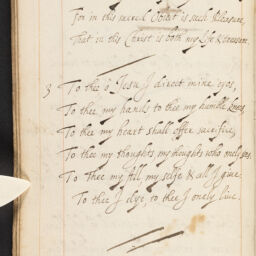 For in this sacred Count is such pleasure,
That in this Christ is both my life & treasure.
3 To thee ô Jesu J direct mine eyes,
To thee my hands to thee my humble knees
To thee my heart shall offer sacrifice,
To thee my thoughts, my thoughts who only sees.
To Thee my self, my selfe & all J give;
To thee J dye, to thee J onely live.